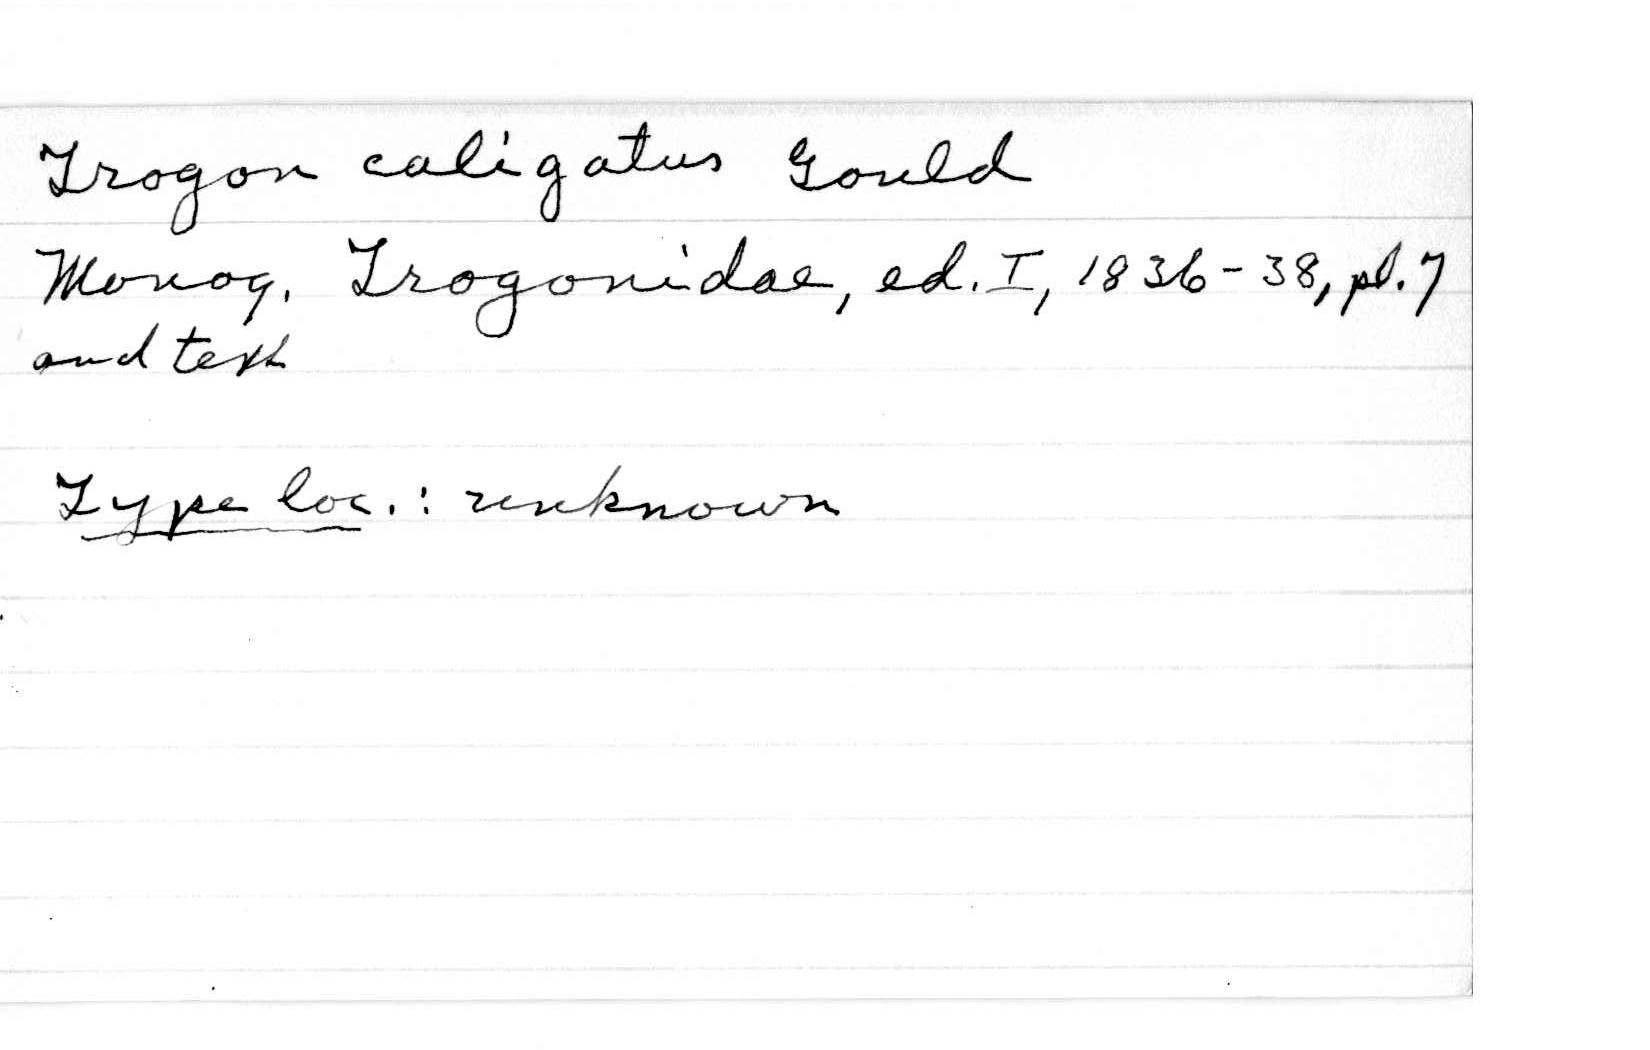 Trogon caligatus Gould
Monog. Trogonidae, ed. I, 1836-38, pl. 7
and text
Type loc.: unknown